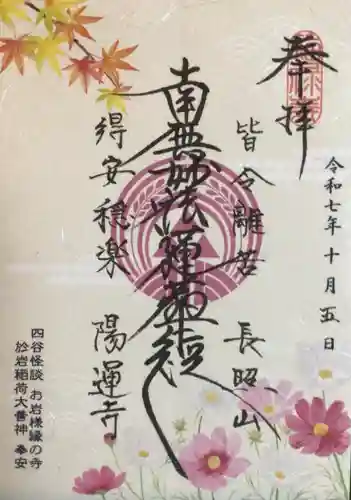 奉拝
令和七年十月五日
皆令離苦
長照山
南無妙法蓮華経
得安穏楽
陽運寺
四谷怪談 お岩様縁の寺
於岩稲荷大善神 奉安